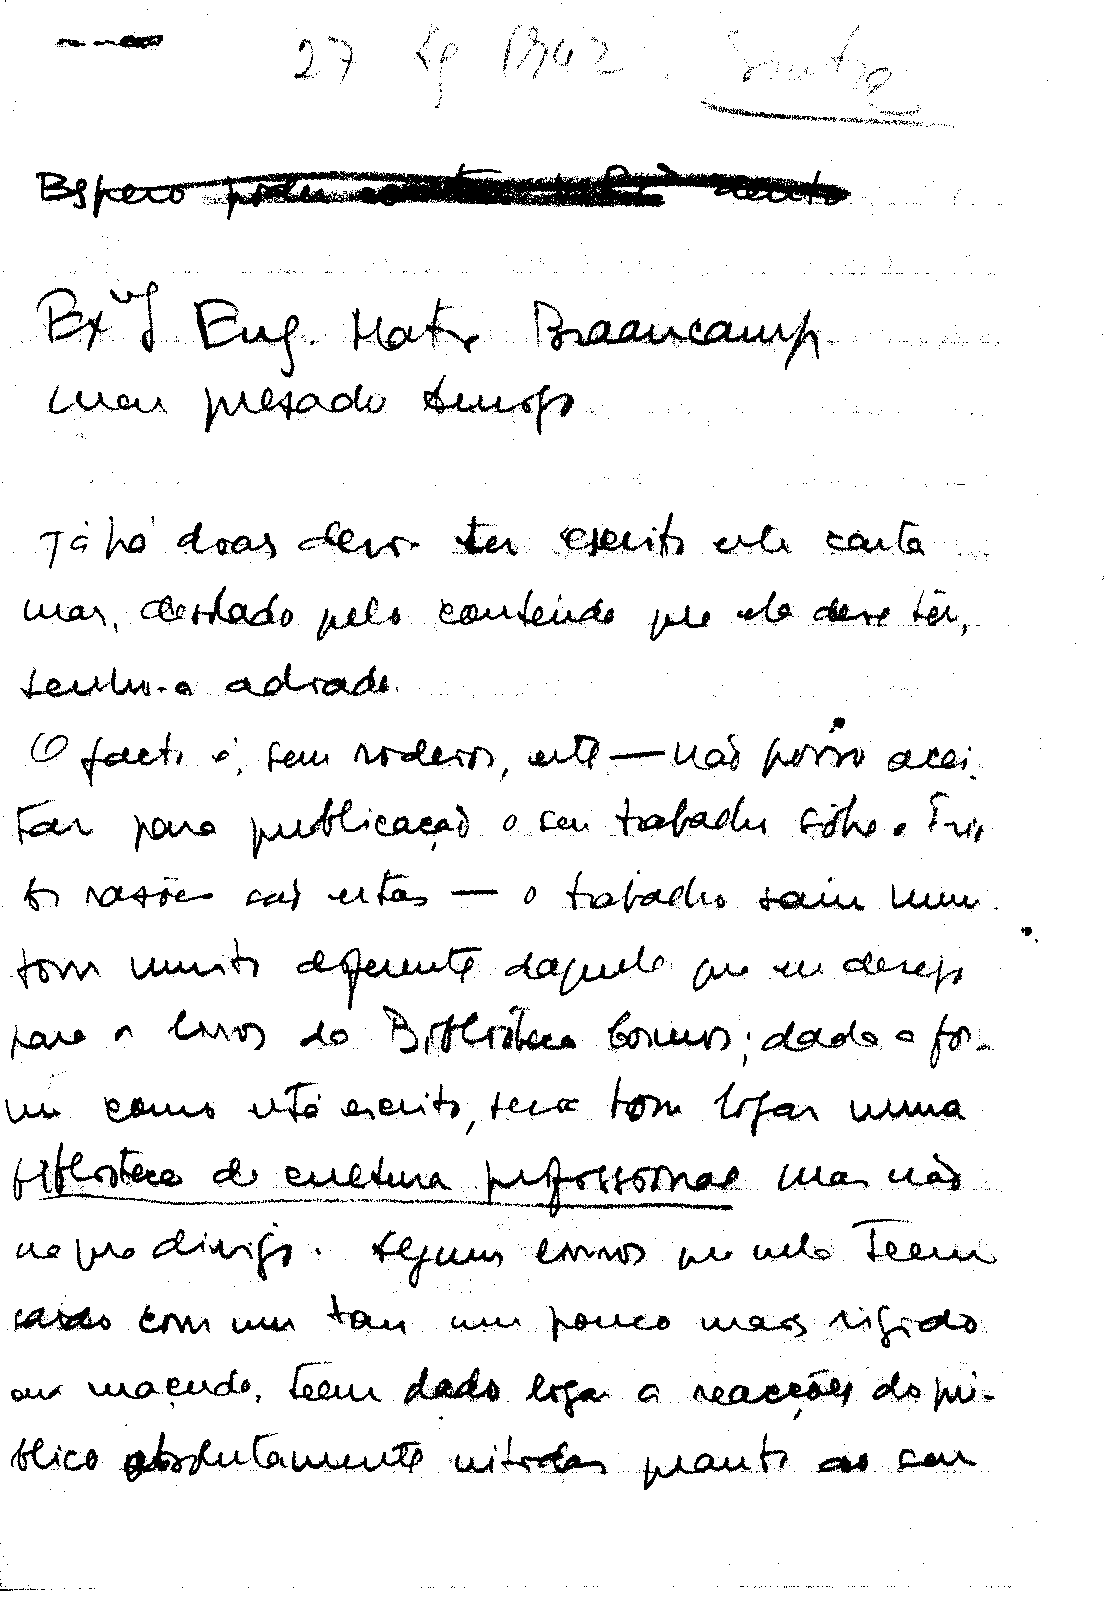 27 Ag 1942. Sintra
Espero poder
Exmo Eng. Matos Braamcamp
meu prezado Amigo
Já há dias devo ter escrito esta carta
mas, desolado pelo conteúdo que ela deve têr,
tenho-a adiado.
O facto é, sem rodeios, este — não posso acei-
tar para publicação o seu trabalho sôbre o Trigo
As razões são estas — o trabalho saíu num
tom muito diferente daquele que eu desejo
para os livros da Biblioteca Cosmos; dada a for-
ma como está escrito, teria bom logar numa
biblioteca de cultura profissional mas não
na que dirijo. Alguns livros que nela teem
saído com um tom um pouco mais rigido
ou maçudo, teem dado logar a reacções do pú-
blico absolutamente nitidas quanto ao seu